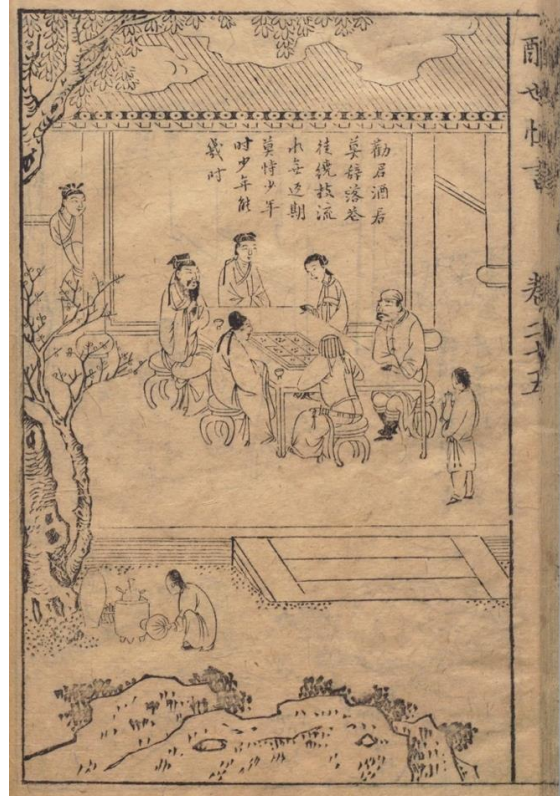 醒世恒言
卷二十五
勸君酒君
莫辭落花
徒繞枝流
水無返期
莫恃少年
时少年能
幾时